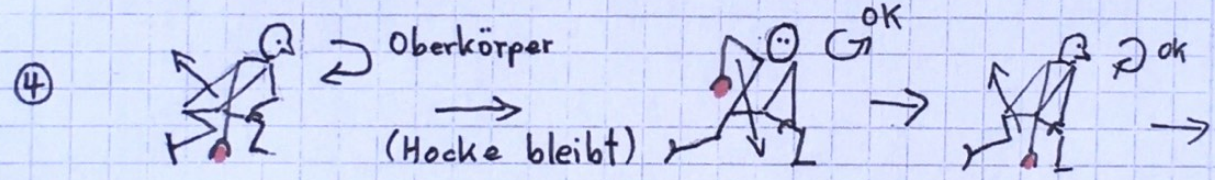 ④
Oberkörper
(Hocke bleibt)
OK
ok